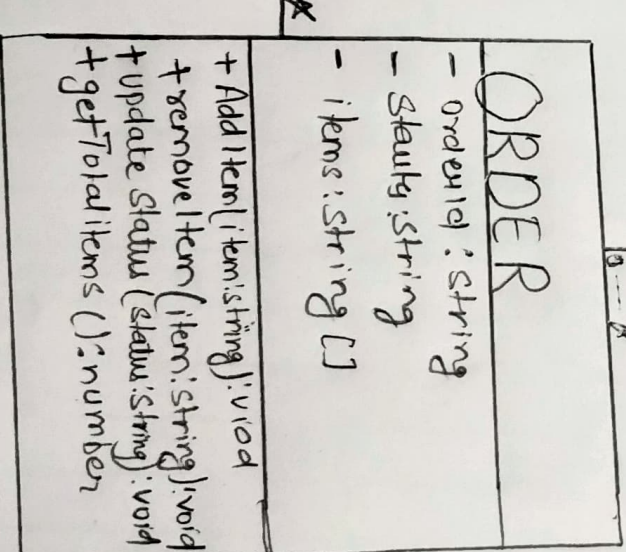 ORDER
- orderid : string
- Stauts : String
- items : String []
+ AddItem(item:string):viod
+ removeItem(item:string):void
+ update Status (status:string): void
+ getTotalitems () : number